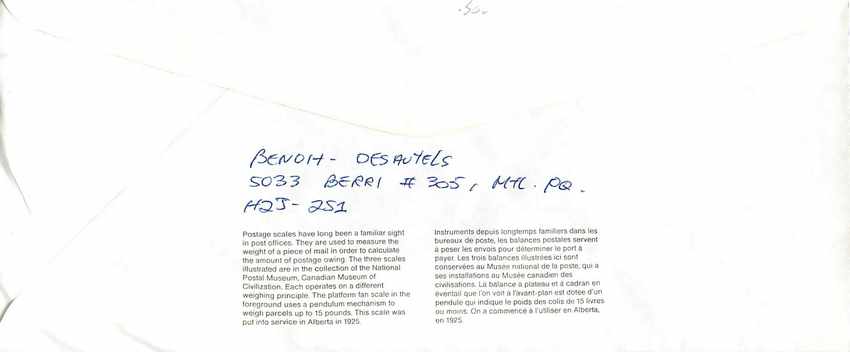 .50-
BENOIT - DESAUTELS
5033 BERRI # 305, MTL. PQ.
H2J - 2S1
Postage scales have long been a familiar sight
in post offices. They are used to measure the
weight of a piece of mail in order to calculate
the amount of postage owing. The three scales
illustrated are in the collection of the National
Postal Museum, Canadian Museum of
Civilization. Each operates on a different
weighing principle. The platform fan scale in the
foreground uses a pendulum mechanism to
weigh parcels up to 15 pounds. This scale was
put into service in Alberta in 1925.
Instruments depuis longtemps familiers dans les
bureaux de poste, les balances postales servent
à peser les envois pour déterminer le port à
payer. Les trois balances illustrées ici sont
conservées au Musée national de la poste, qui a
ses installations au Musée canadien des
civilisations. La balance à plateau et à cadran en
éventail que l'on voit à l'avant-plan est dotée d'un
pendule qui indique le poids des colis de 15 livres
ou moins. On a commencé à l'utiliser en Alberta,
en 1925.